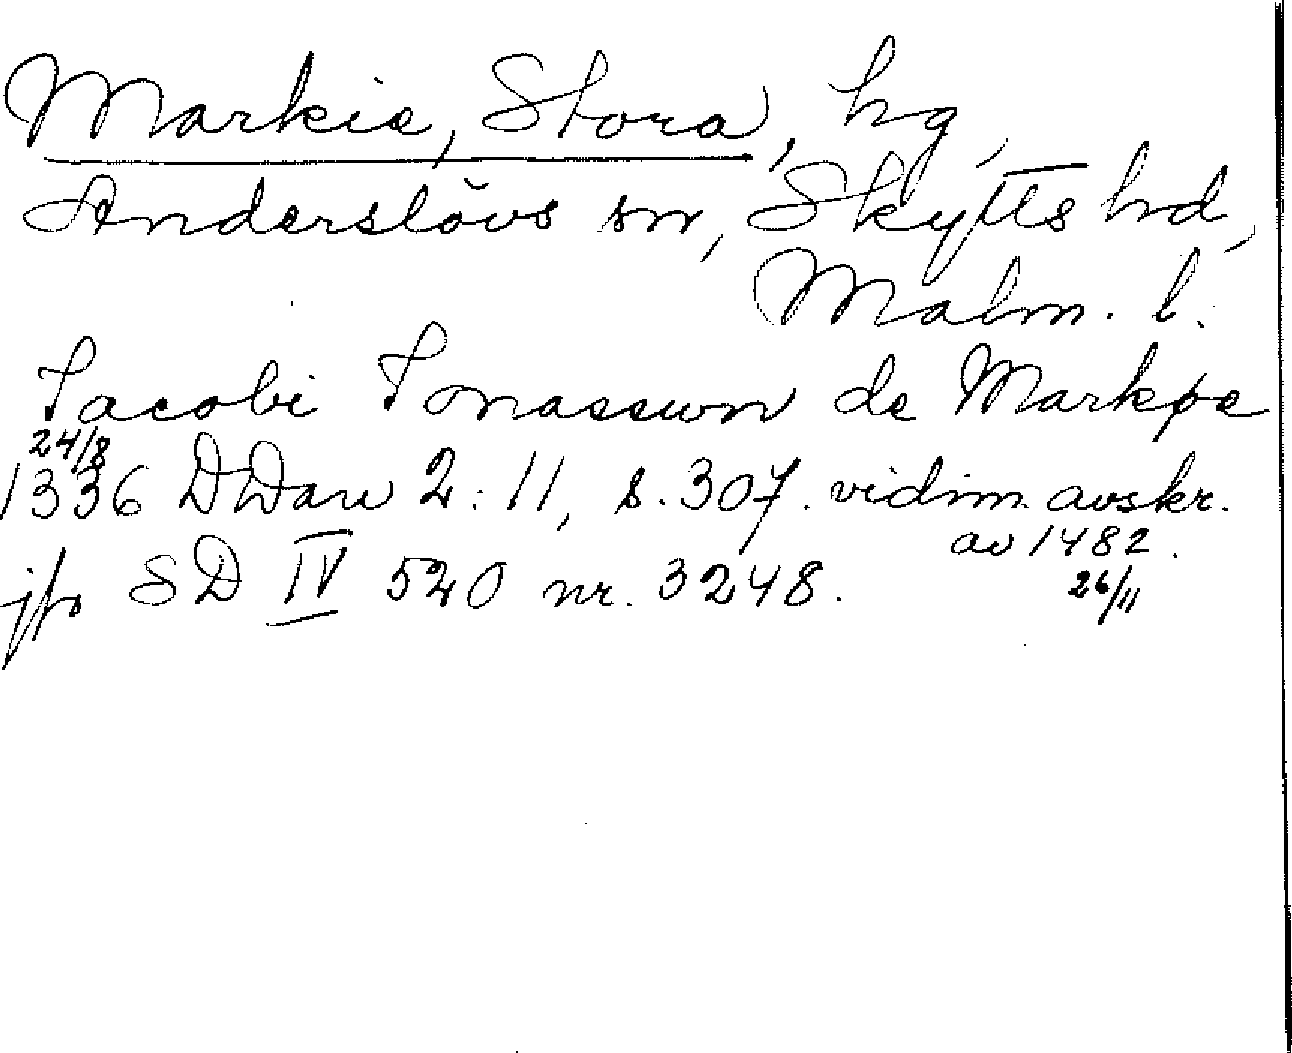 Markie, Stora, hg,
Anderslövs sn, Skytts hd,
Malm. l.
Jacobi Jonasswn de Markøe
24/8
1336 DDan 2:11, s. 307. vidim. avskr.
av 1482.
26/11
jfr SD IV 520 nr. 3248.